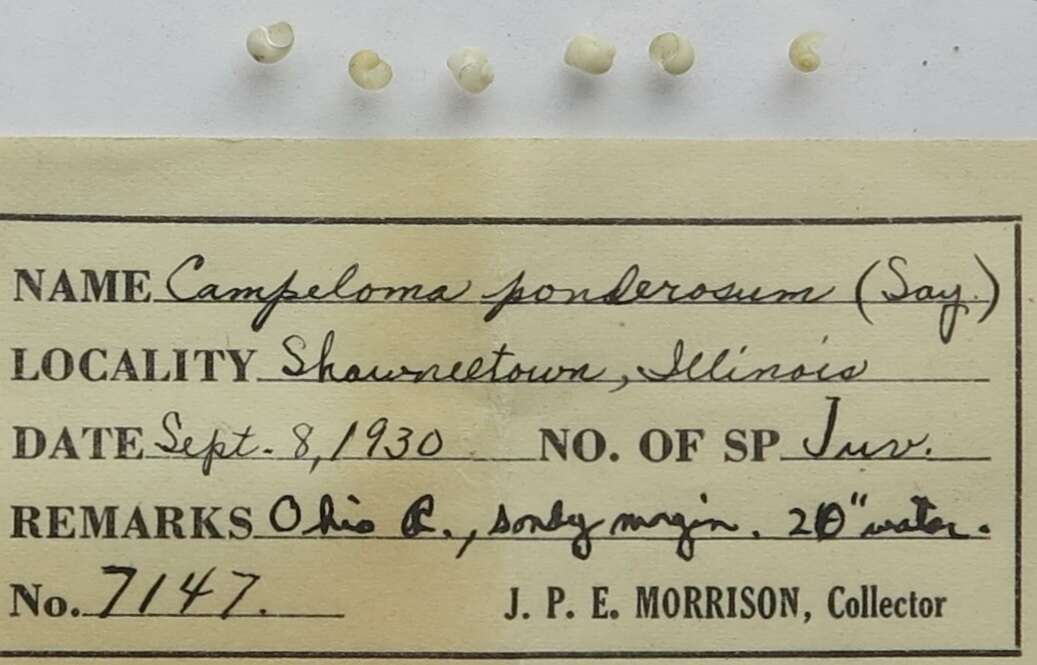 NAME Campeloma ponderosum (Say.)
LOCALITY Shawneetown, Illinois
DATE Sept. 8, 1930 NO. OF SP Juv.
REMARKS Ohio R., sandy margin. 20" water.
No. 7147. J. P. E. MORRISON, Collector